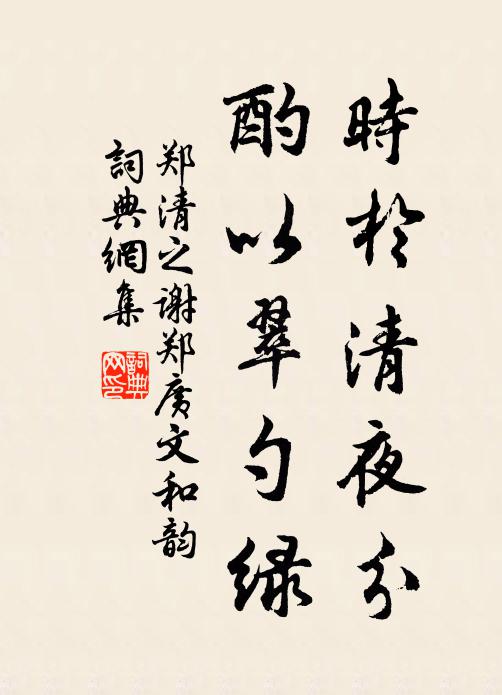 時於清夜分
酌以翠勺緑
郑清之谢郑廣文和韵
詞典網集
詞典网印